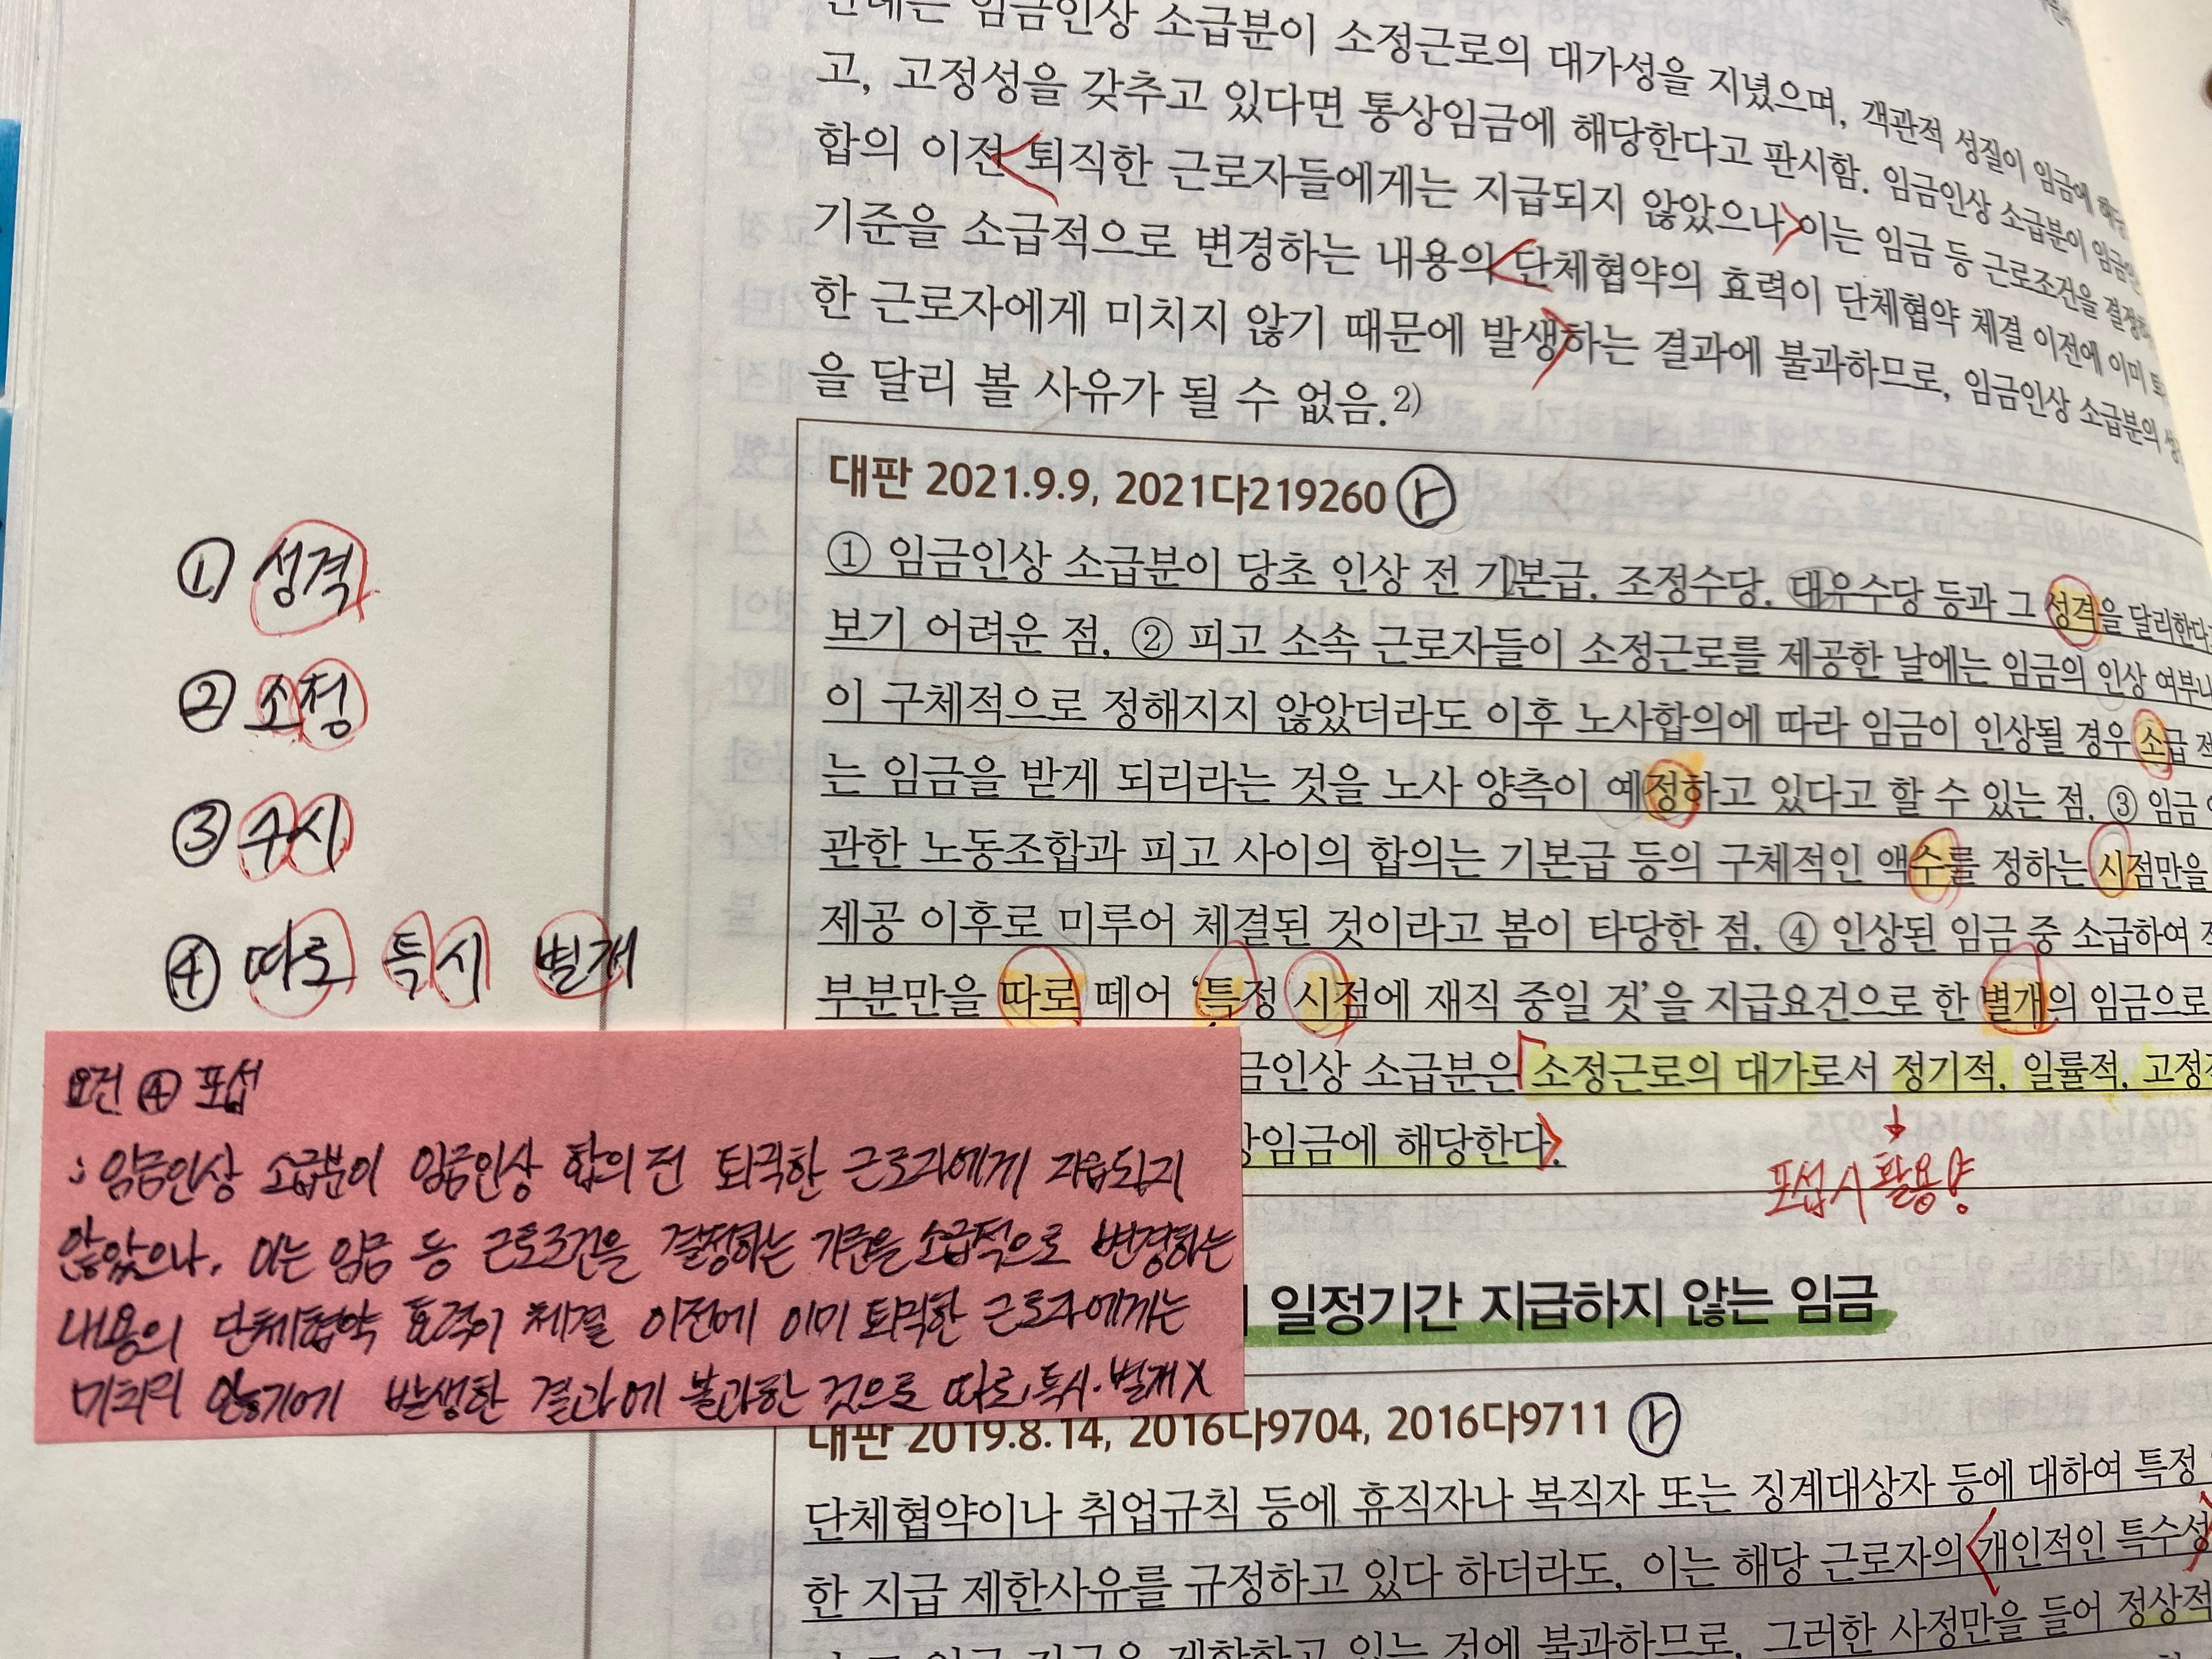 임금인상 소급분이 소정근로의 대가성을 지녔으며, 객관적 성질이 임금에
고, 고정성을 갖추고 있다면 통상임금에 해당한다고 판시함. 임금인상 소급분이
합의 이전 퇴직한 근로자들에게는 지급되지 않았으나 이는 임금 등 근로조건을
기준을 소급적으로 변경하는 내용의 단체협약의 효력이 단체협약 체결 이전에 이미
한 근로자에게 미치지 않기 때문에 발생하는 결과에 불과하므로, 임금인상 소급분의
을 달리 볼 사유가 될 수 없음.2)
대판 2021.9.9, 2021다219260 ㅏ
① 임금인상 소급분이 당초 인상 전 기본급, 조정수당, 대우수당 등과 그 성격을 달리한다
보기 어려운 점, ② 피고 소속 근로자들이 소정근로를 제공한 날에는 임금의 인상 여부나
이 구체적으로 정해지지 않았더라도 이후 노사합의에 따라 임금이 인상될 경우 소급
는 임금을 받게 되리라는 것을 노사 양측이 예정하고 있다고 할 수 있는 점, ③ 임금
관한 노동조합과 피고 사이의 합의는 기본급 등의 구체적인 액수를 정하는 시점만을
제공 이후로 미루어 체결된 것이라고 봄이 타당한 점, ④ 인상된 임금 중 소급하여
부분만을 따로 떼어 '특정 시점에 재직 중일 것'을 지급요건으로 한 별개의 임금으로
금인상 소급분은 소정근로의 대가로서 정기적, 일률적, 고정적
상임금에 해당한다.
포섭시 활용양
① 성격
② 소정
③ 수시
④ 따로 특시 별개
요건 ④ 포섭
: 임금인상 소급분이 임금인상 합의 전 퇴직한 근로자에게 지급되지
않았으나, 이는 임금 등 근로조건을 결정하는 기준을 소급적으로 변경하는
내용의 단체협약 효력이 체결 이전에 이미 퇴직한 근로자에게는
미치지 않기에 발생한 결과에 불과한 것으로 따로, 특시·별개 X
일정기간 지급하지 않는 임금
대판 2019.8.14, 2016다9704, 2016다9711 ㅏ
단체협약이나 취업규칙 등에 휴직자나 복직자 또는 징계대상자 등에 대하여 특정
한 지급 제한사유를 규정하고 있다 하더라도, 이는 해당 근로자의 개인적인 특수성
임금 지급을 제한하고 있는 것에 불과하므로, 그러한 사정만을 들어 정상적